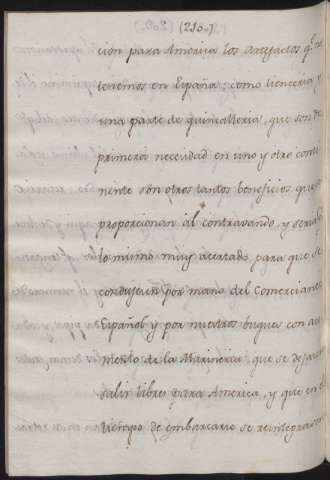 (210.)
cion para America los Artefactos q.e no
tenemos en España; como Lienceria y
una parte de quincalleria, que son de
primera necesidad en uno y otro conti
nente son otros tantos beneficios que se
proporcionan al contravando, y seria
lo mismo muy acertado para que se
condujesen por mano del Comerciante
Español y por nuestros buques con au
mento de la Marineria, que se dejasen
salir libres para America, y que en el
tiempo de embarcarse se reintegrasen